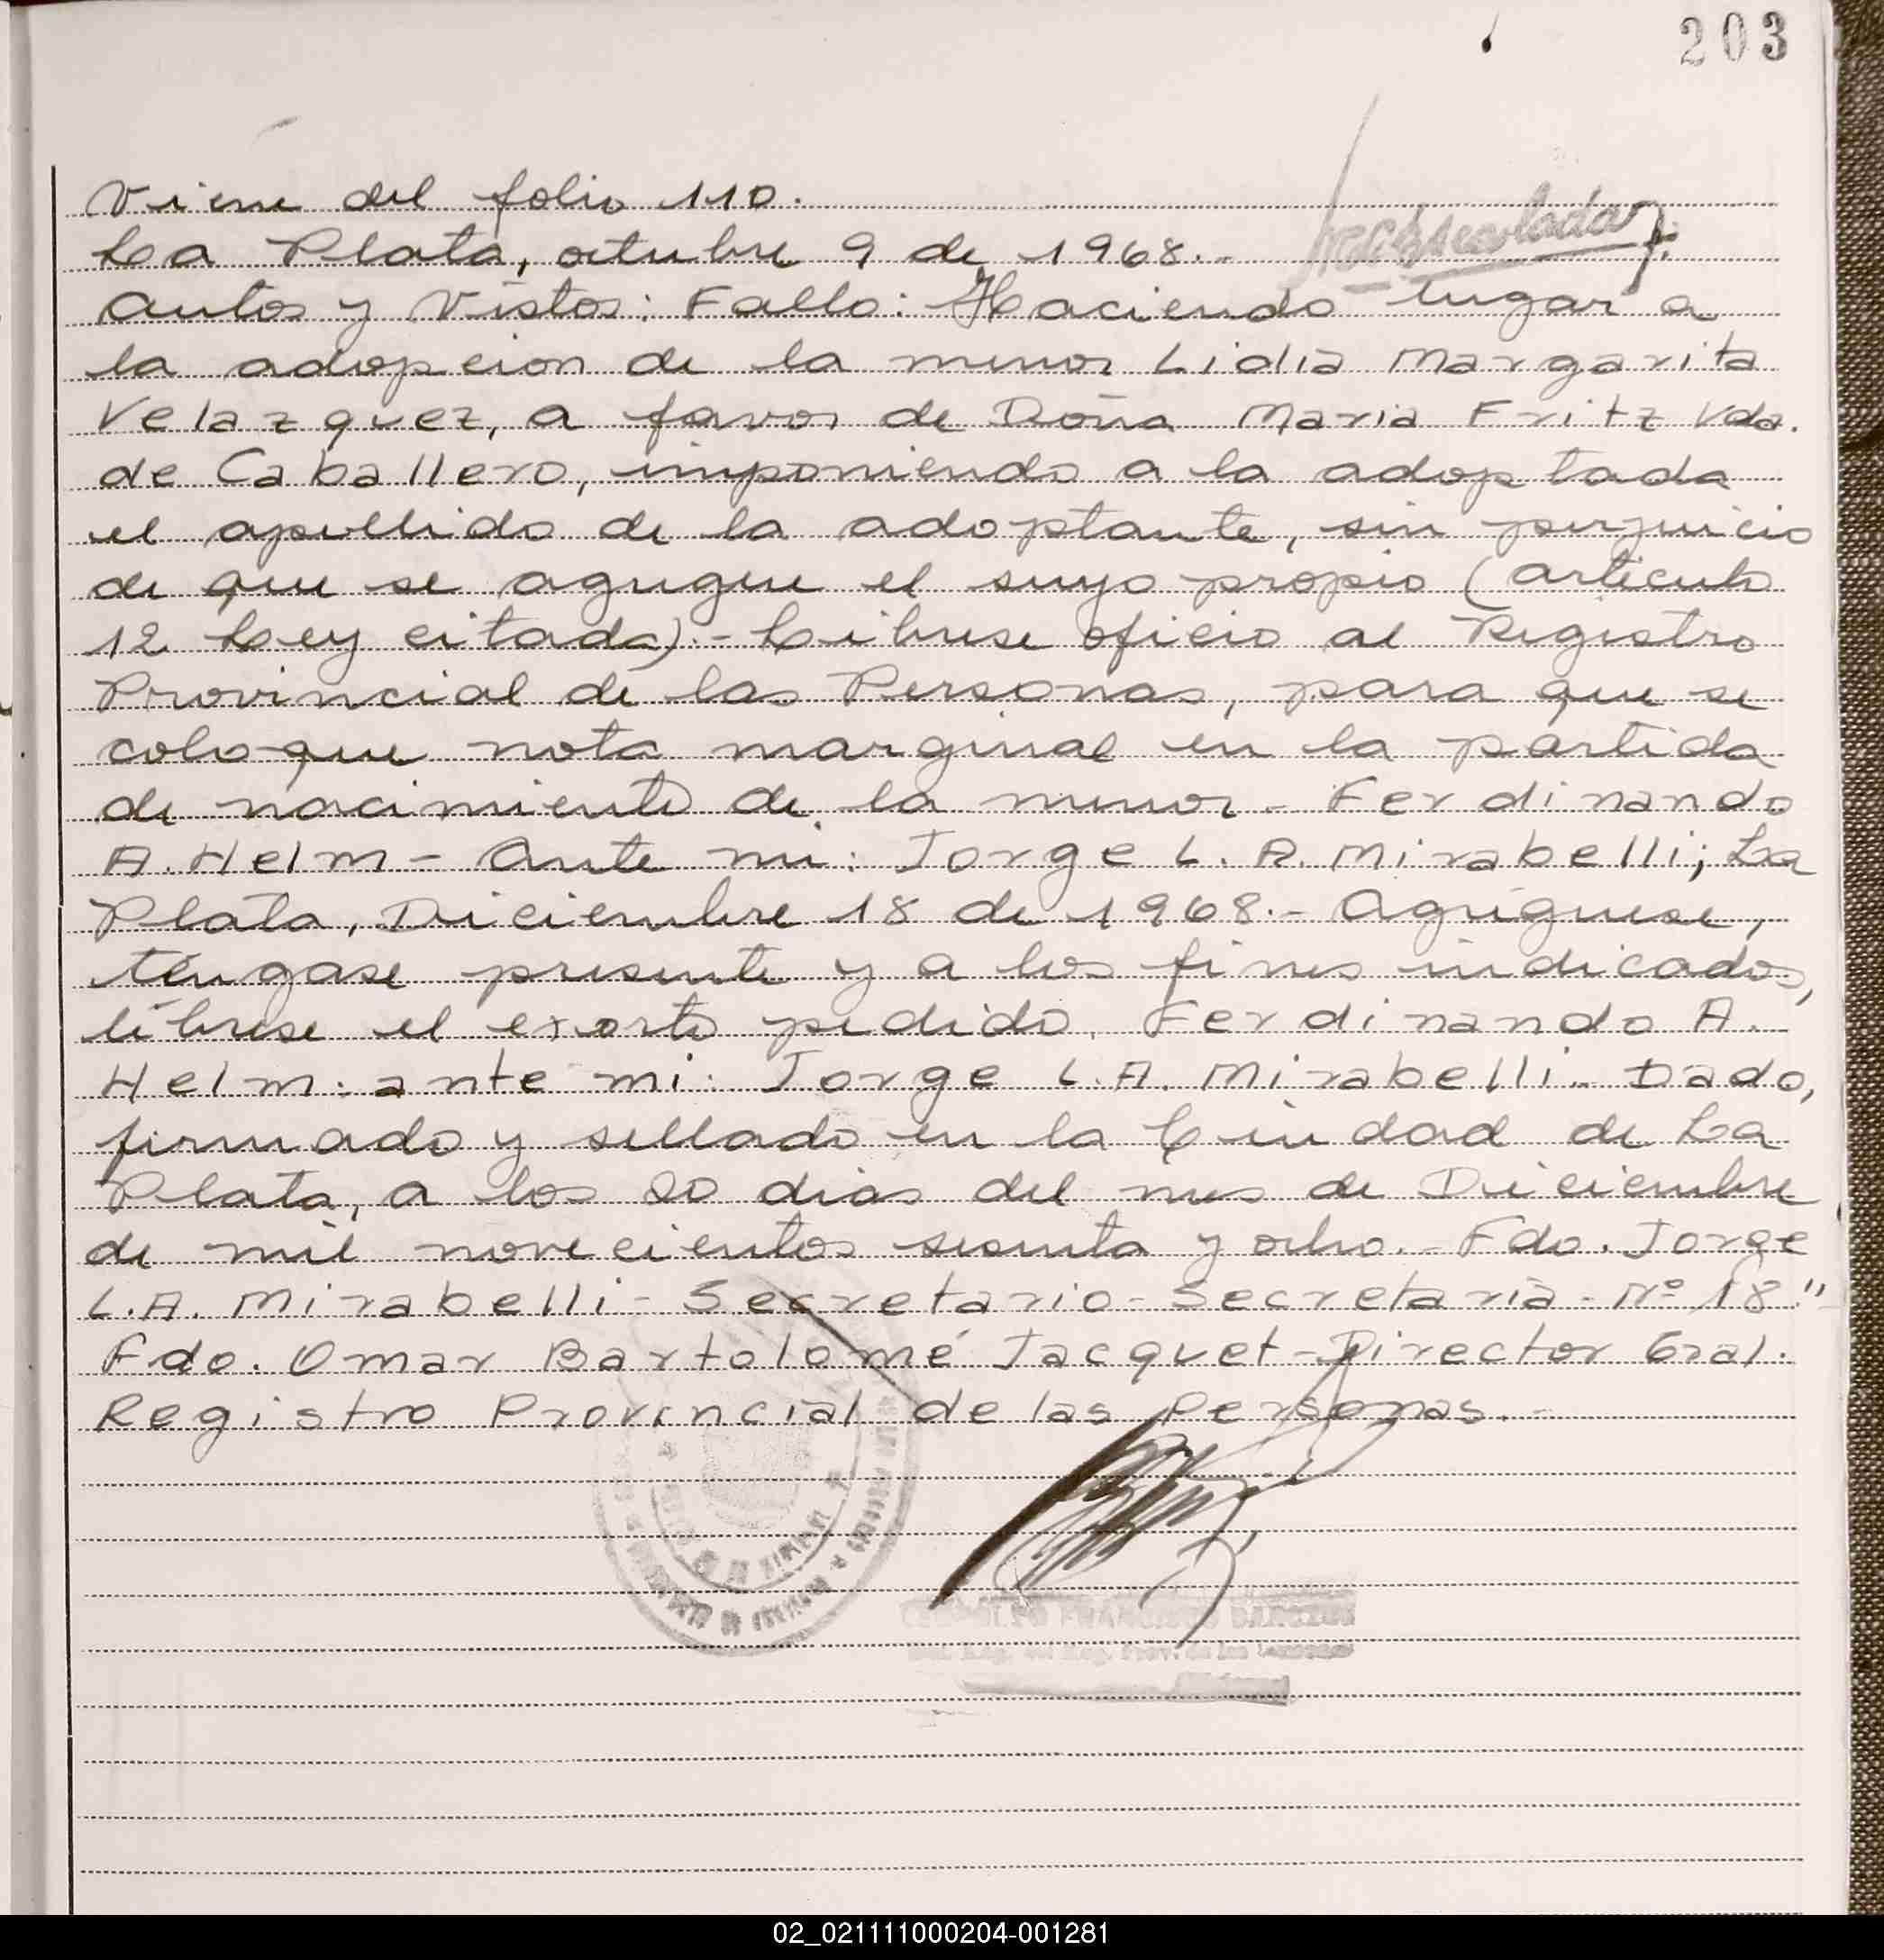 203
Viene del folio 110.
La Plata, octubre 9 de 1968.-
Autos y Vistos: Fallo: Haciendo lugar a
la adopcion de la menor Lidia Margarita
Velazquez, a favor de Doña Maria Fritz Vda.
de Caballero, imponiendo a la adoptada
el apellido de la adoptante, sin perjuicio
de que se agregue el suyo propio (articulo
12 Ley citada).- Librese oficio al Registro
Provincial de las Personas, para que se
coloque nota marginal en la partida
de nacimiento de la menor - Ferdinando
A. Helm - Ante mi: Jorge L. A. Mirabelli; La
Plata, Diciembre 18 de 1968.- Agréguese,
téngase presente y a los fines indicados,
líbrese el exorto pedido. Ferdinando A.
Helm: ante mi: Jorge L.A. Mirabelli.- Dado,
firmado y sellado en la Ciudad de La
Plata, a los 20 dias del mes de Diciembre
de mil novecientos sesenta y ocho.- Fdo. Jorge
L.A. Mirabelli - Secretario - Secretaria - Nº 18."
Fdo. Omar Bartolomé Jacquet - Director Gral.
Registro Provincial de las Personas.-
FRANCISCO
02_021111000204-001281